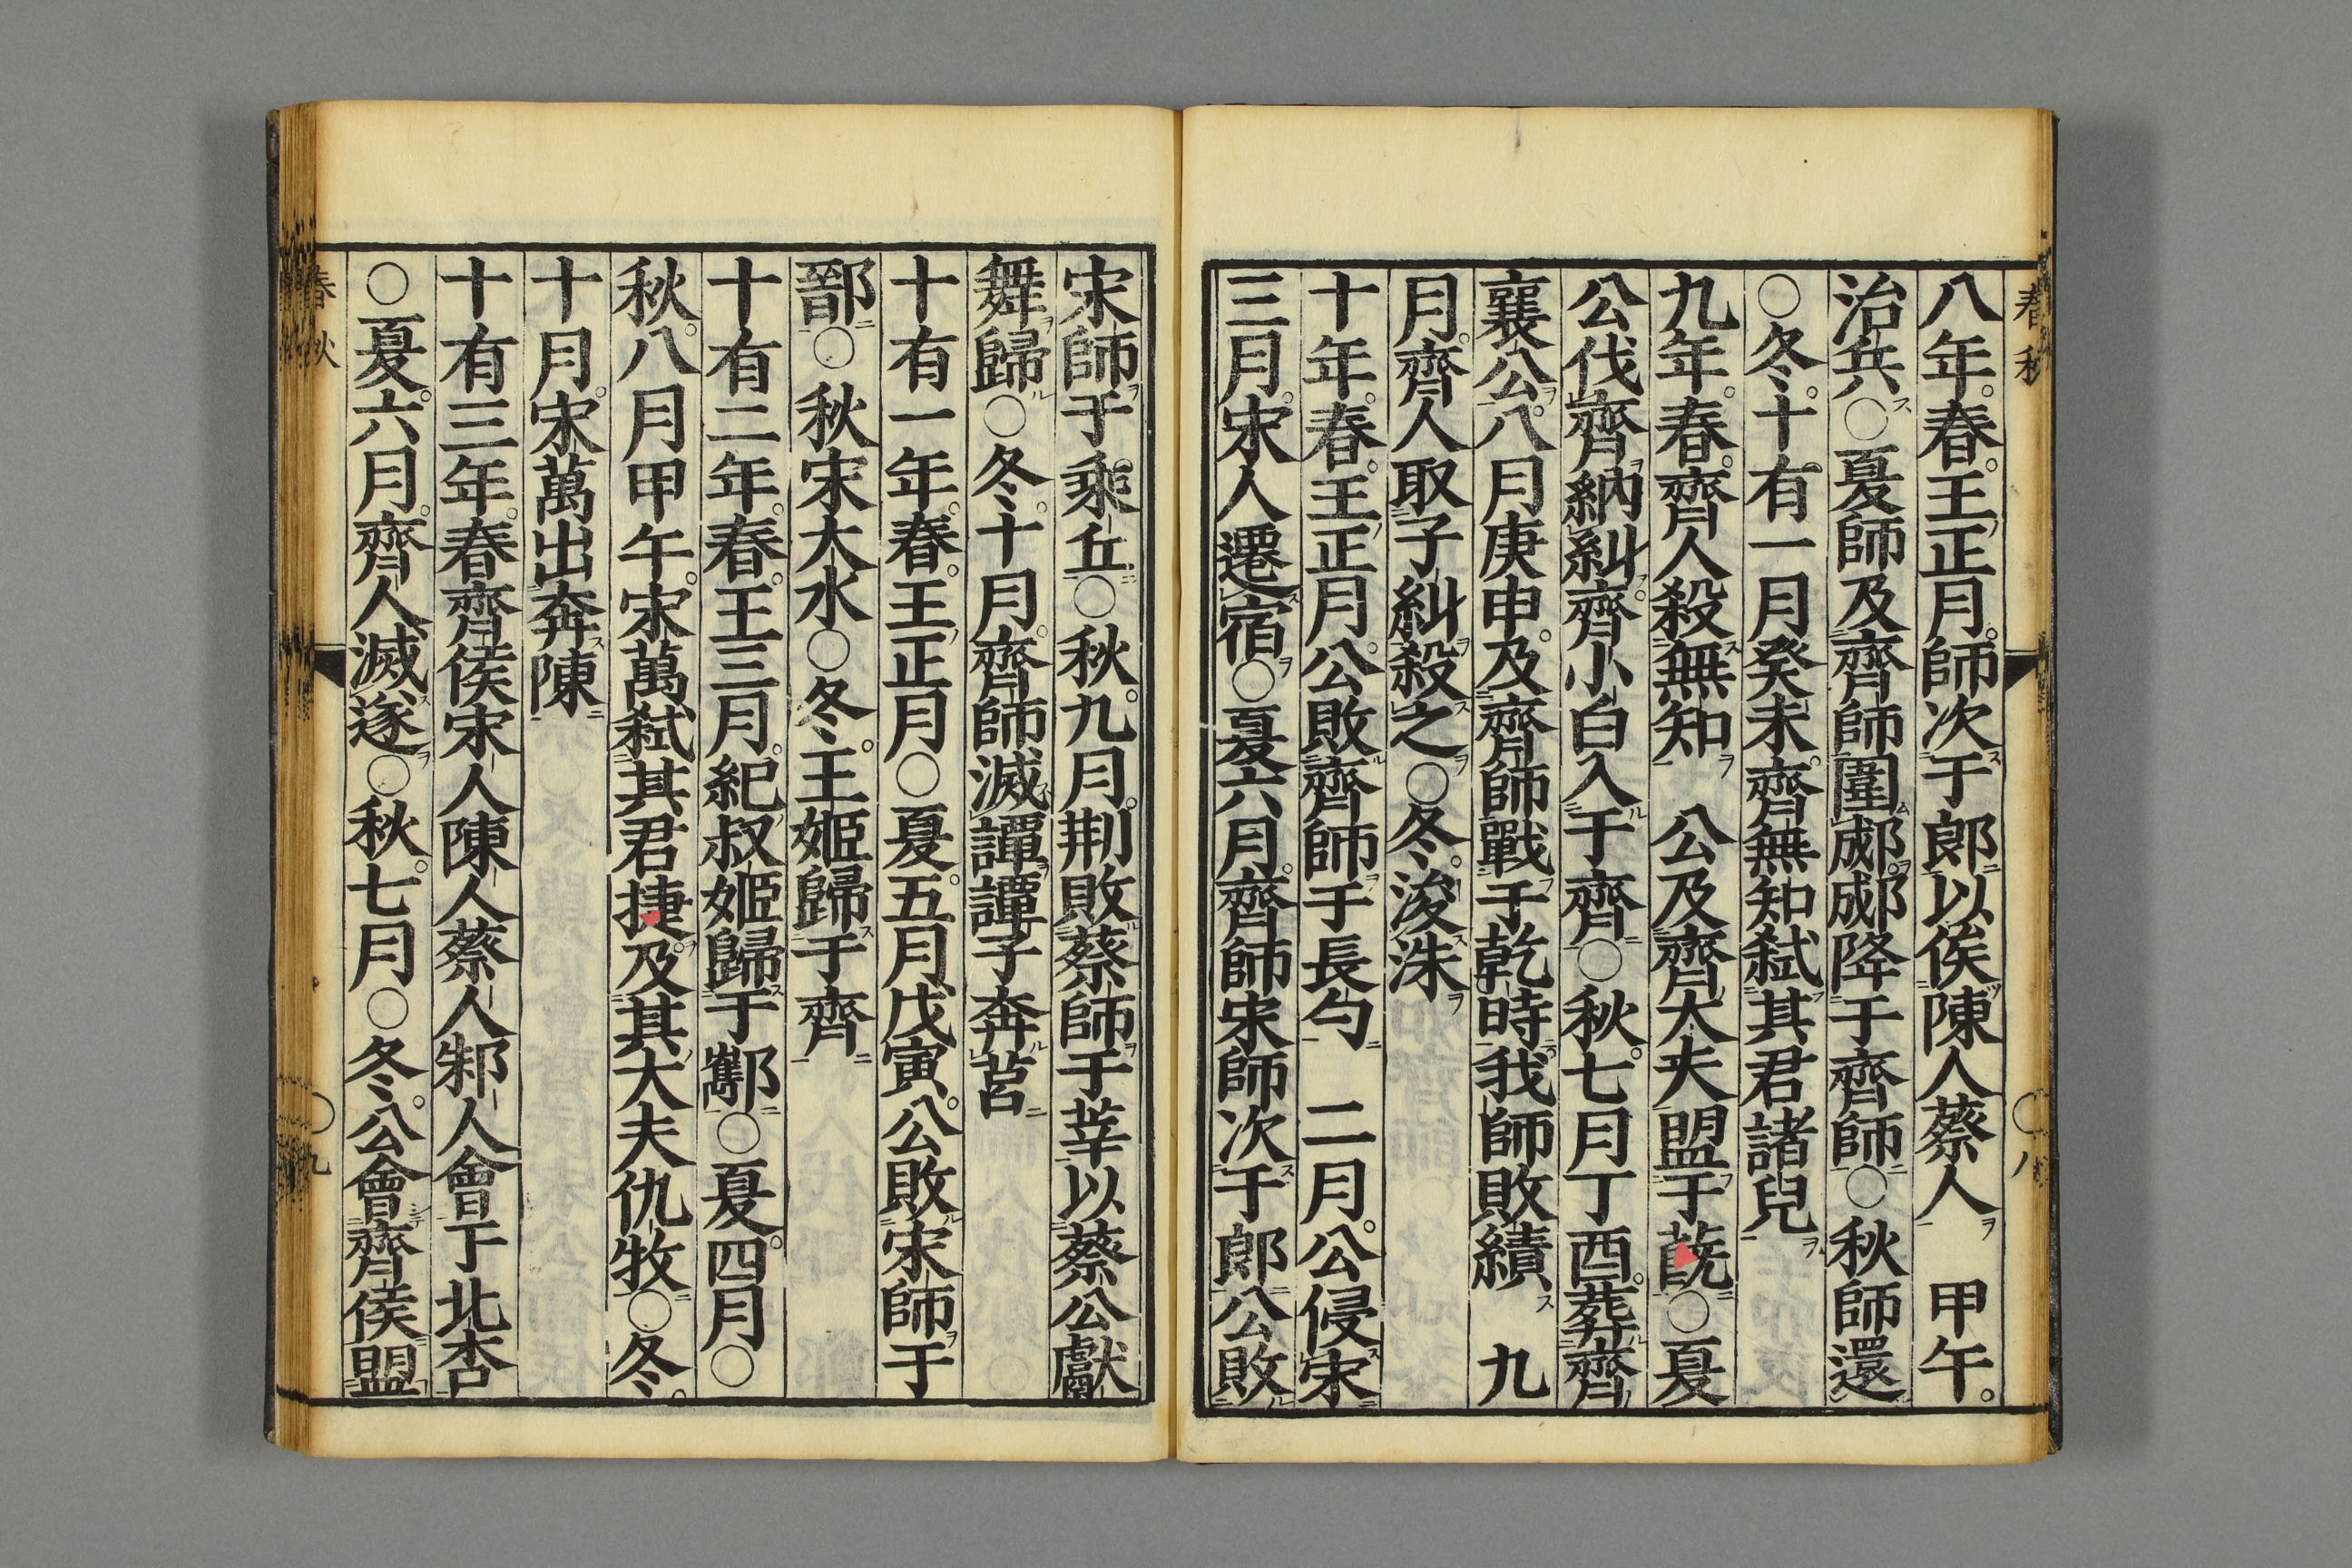 八年春王正月師次于郎以俟陳人蔡人 甲午
治兵○夏師及齊師圍郕郕降于齊師○秋師還
○冬十有一月癸未齊無知弑其君諸兒
九年春齊人殺無知 公及齊大夫盟于蔇○夏
公伐齊納糾齊小白入于齊○秋七月丁酉葬齊
襄公八月庚申及齊師戰于乾時我師敗績 九
月齊人取子糾殺之○冬浚洙
十年春王正月公敗齊師于長勺 二月公侵宋
三月宋人遷宿○夏六月齊師宋師次于郎公敗
春秋
○八
宋師于乘丘○秋九月荆敗蔡師于莘以蔡公獻
舞歸○冬十月齊師滅譚譚子奔莒
十有一年春王正月○夏五月戊寅公敗宋師于
鄑○秋宋大水○冬王姬歸于齊
十有二年春王三月紀叔姬歸于酅○夏四月○
秋八月甲午宋萬弑其君捷及其大夫仇牧○冬
十月宋萬出奔陳
十有三年春齊侯宋人陳人蔡人邾人會于北杏
○夏六月齊人滅遂○秋七月○冬公會齊侯盟
春秋
○九